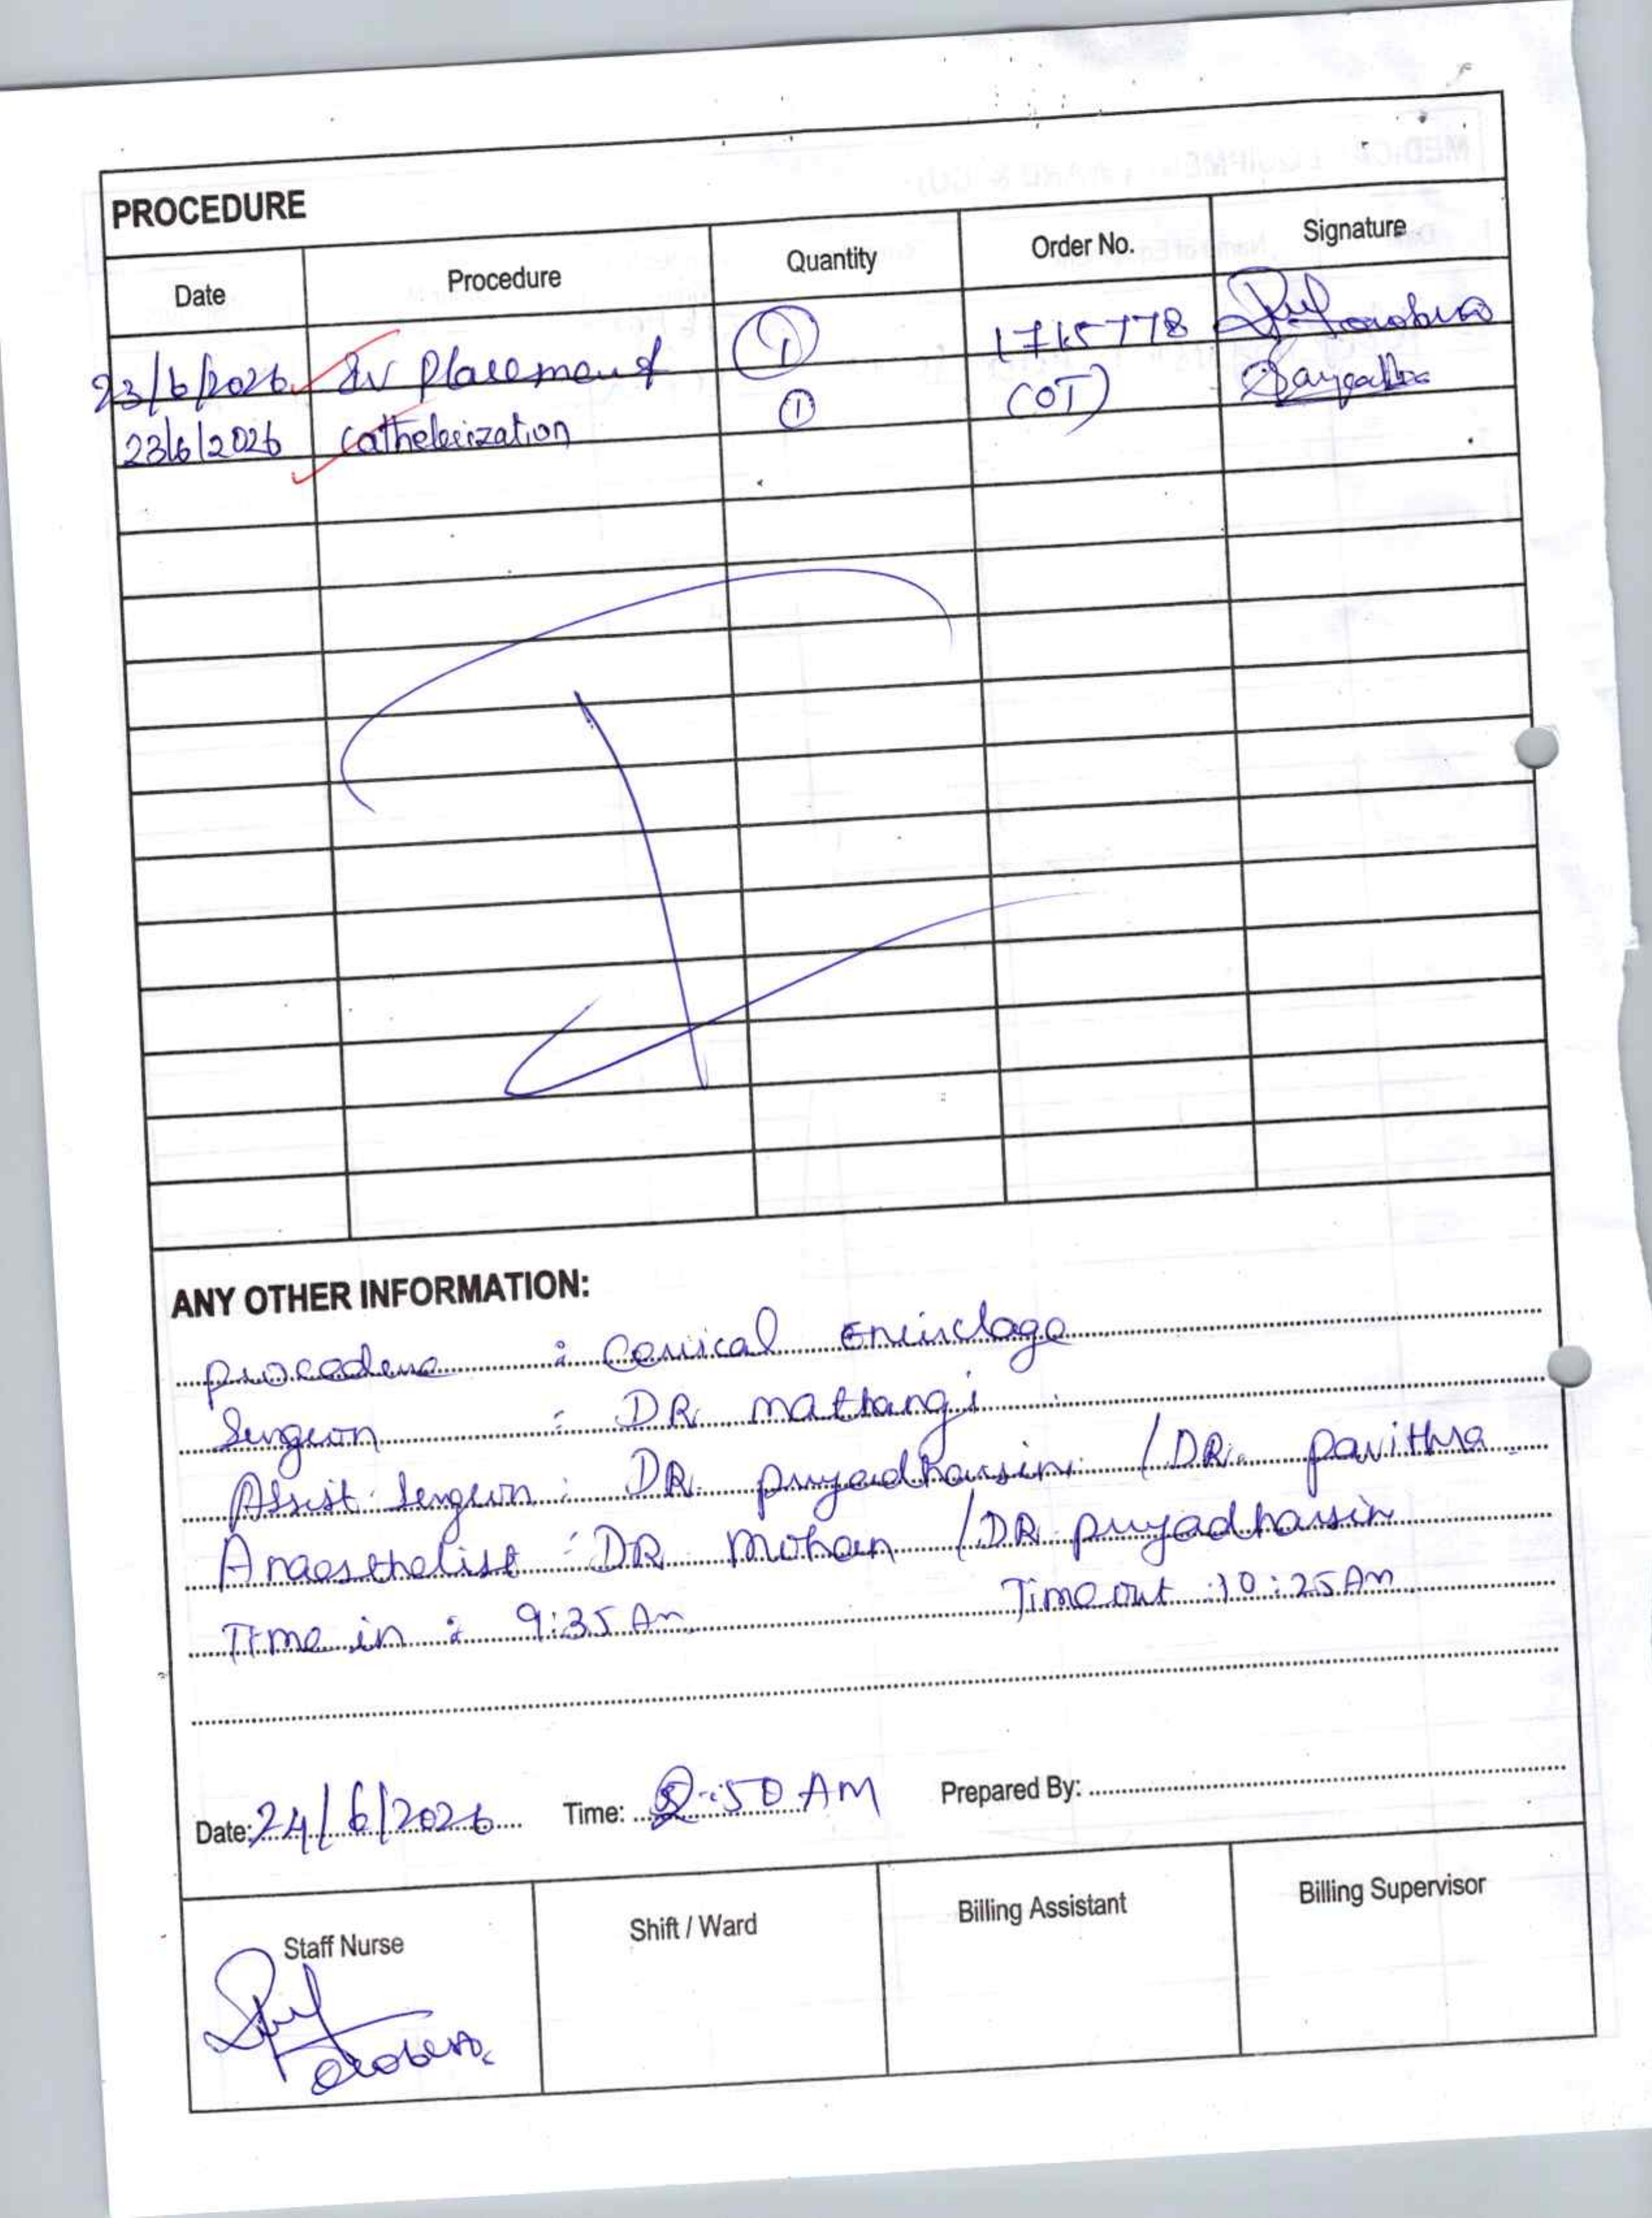 PROCEDURE
Date Procedure Quantity Order No. Signature
23/6/2026 IV Placement 1 1765778
23/6/2026 Catheterization 1 (OT)
ANY OTHER INFORMATION:
procedure : Cervical Encirclage
Surgeon : DR. Mathangi
Assist. Surgeon : DR. priyadharsini / DR. pavithra
Anaesthetist : DR Mohan / DR priyadharsin
Time in : 9:35 Am Time out : 10:25 Am
Date: 24/6/2026 Time: :50 AM Prepared By:
Staff Nurse Shift / Ward Billing Assistant Billing Supervisor